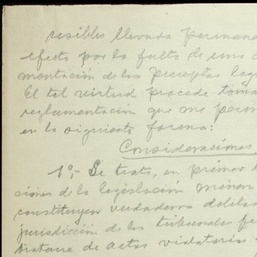 sisibles llevada permane
efecto por la falta de una r
mentación de los preceptos leg
El tal virtud procede toma
reglamentación que me perm
en la siguiente forma:
Consideraciones
1º.- Se trata, en primer l
ción de la legislación minera
constituyen verdaderos delitos
jurisdicción de los tribunales fe
tratarse de actos violatorios